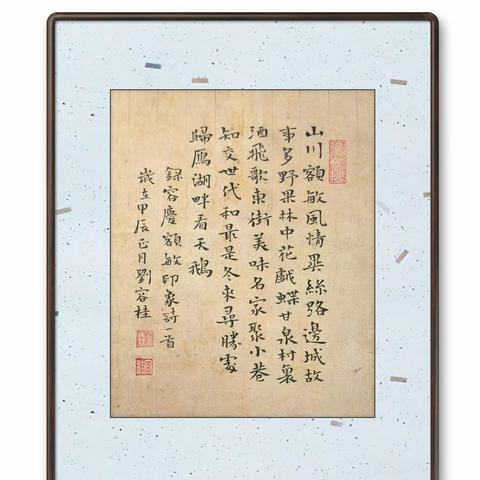 山川額敏風情異絲路邊城故
事多野果林中花戲蝶甘泉村裏
酒飛歌東街美味名家聚小巷
知交世代和最是冬來尋勝處
歸雁湖畔看天鵝
録容慶額敏印象詩一首
歲在甲辰正月劉容桂